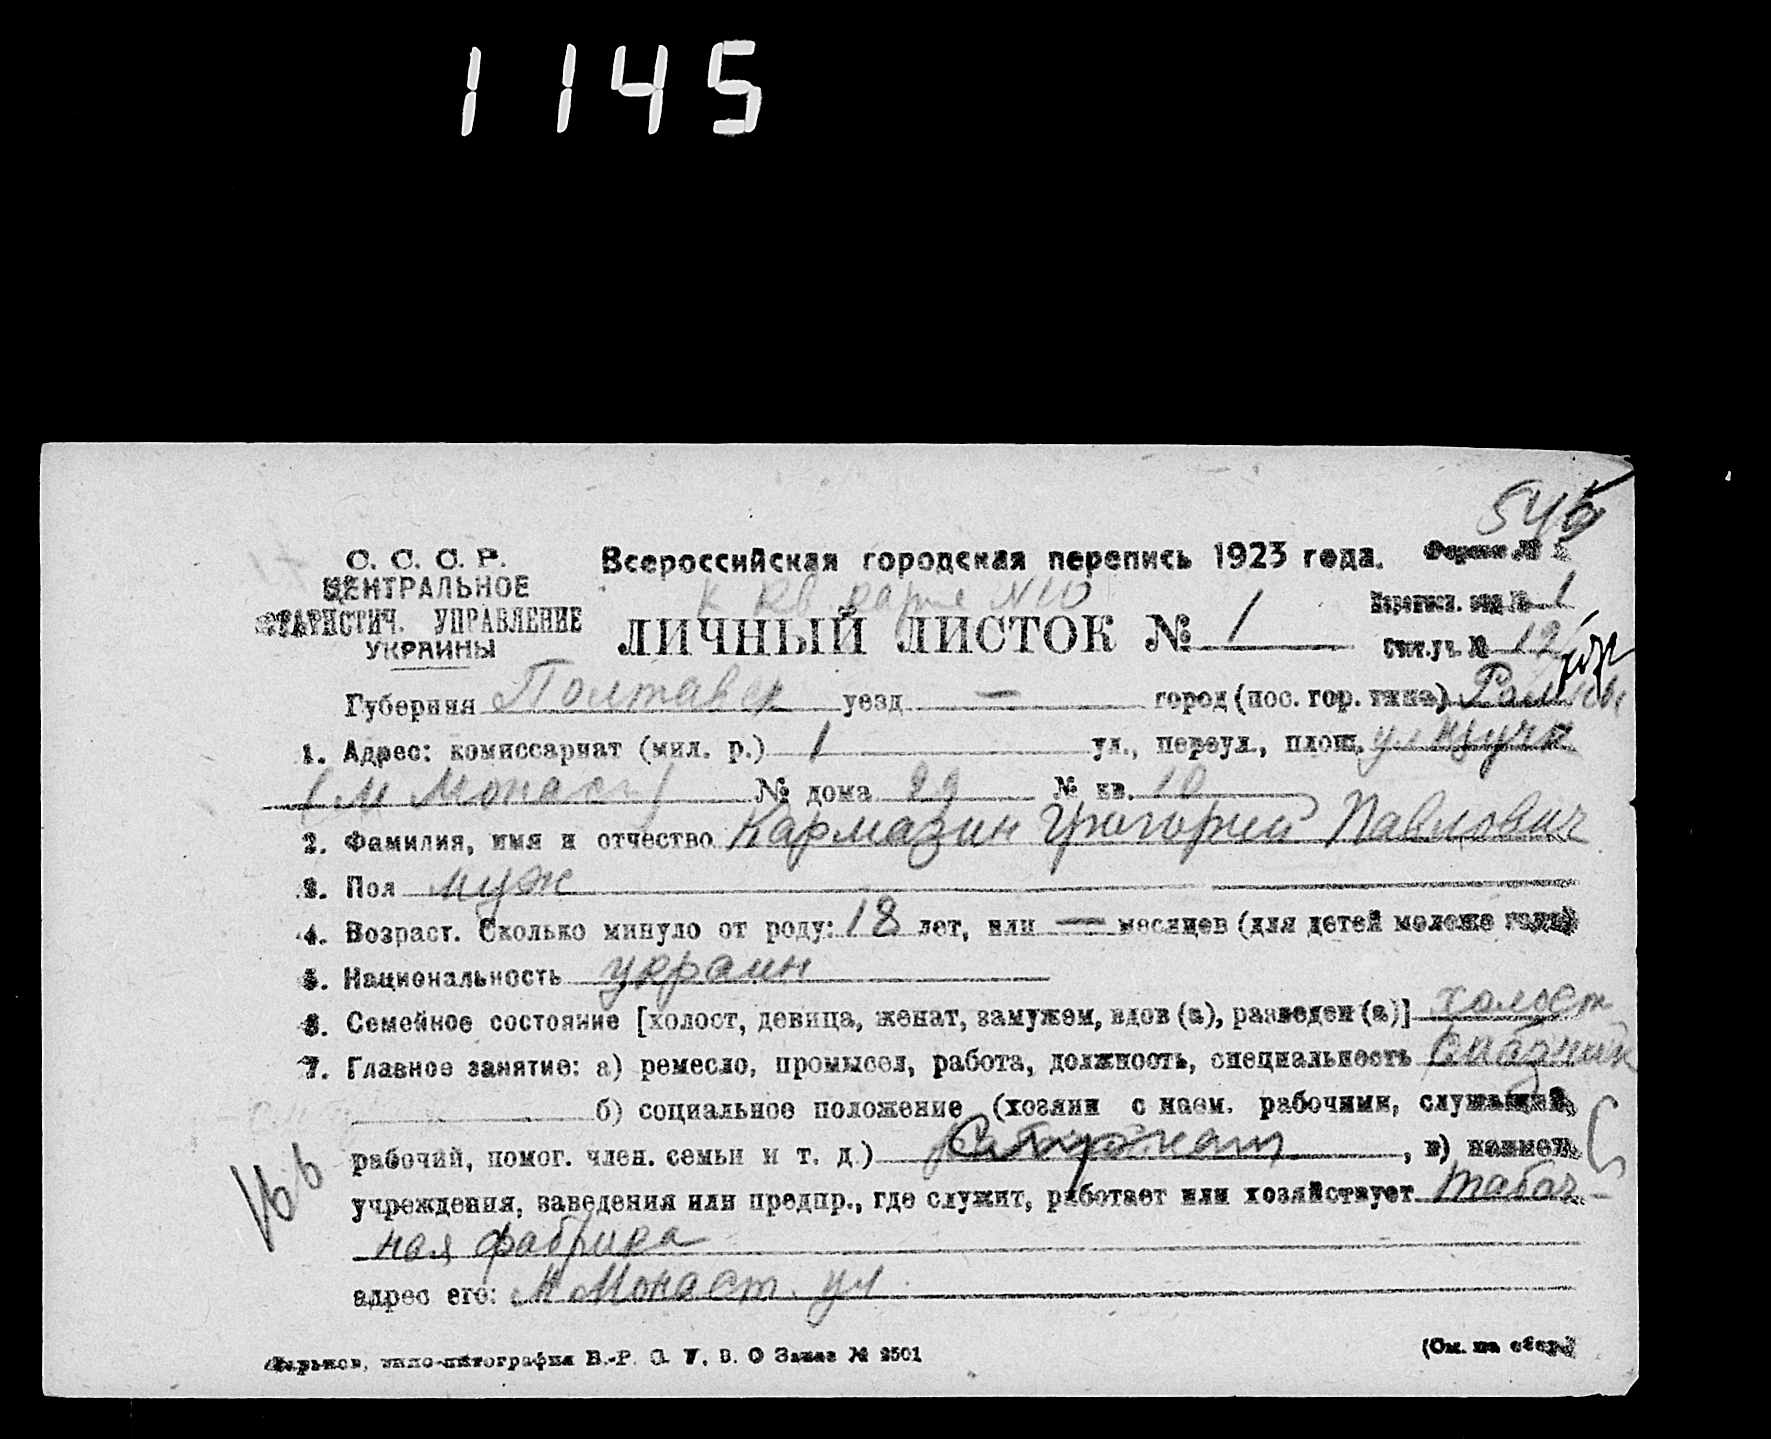 1145
546
С. С. С. Р.
ЦЕНТРАЛЬНОЕ
СТАТИСТИЧ. УПРАВЛЕНИЕ
УКРАИНЫ
Всероссийская городская перепись 1923 года. Форма №
к кв карте N10
ЛИЧНЫЙ ЛИСТОК № 1
Переписн. отд № 1
Счет. уч. № 12
Губерния Полтавск уезд — город (пос. гор. типа) Ромны
1. Адрес: комиссариат (мил. р.) 1 ул., переул., площ. ул
(М Монаст) № дома 22 № кв. 10
2. Фамилия, имя и отчество Кармазин Григорий Павлович
3. Пол муж
4. Возраст. Сколько минуло от роду: 18 лет, или — месяцев (для детей моложе года)
5. Национальность украин
6. Семейное состояние [холост, девица, женат, замужем, вдов (а), разведен (а)] холост
7. Главное занятие: а) ремесло, промысел, работа, должность, специальность
б) социальное положение (хозяин с наем. рабочими, служащий,
рабочий, помог. член. семьи и т. д.) , в) наимен.
учреждения, заведения или предпр., где служит, работает или хозяйствует табач-
ная фабрика
адрес его: М Монаст. ул
166
Харьков, типо-литография В.-Р. С. У. В. О Заказ № 2501
(См. на обор.)